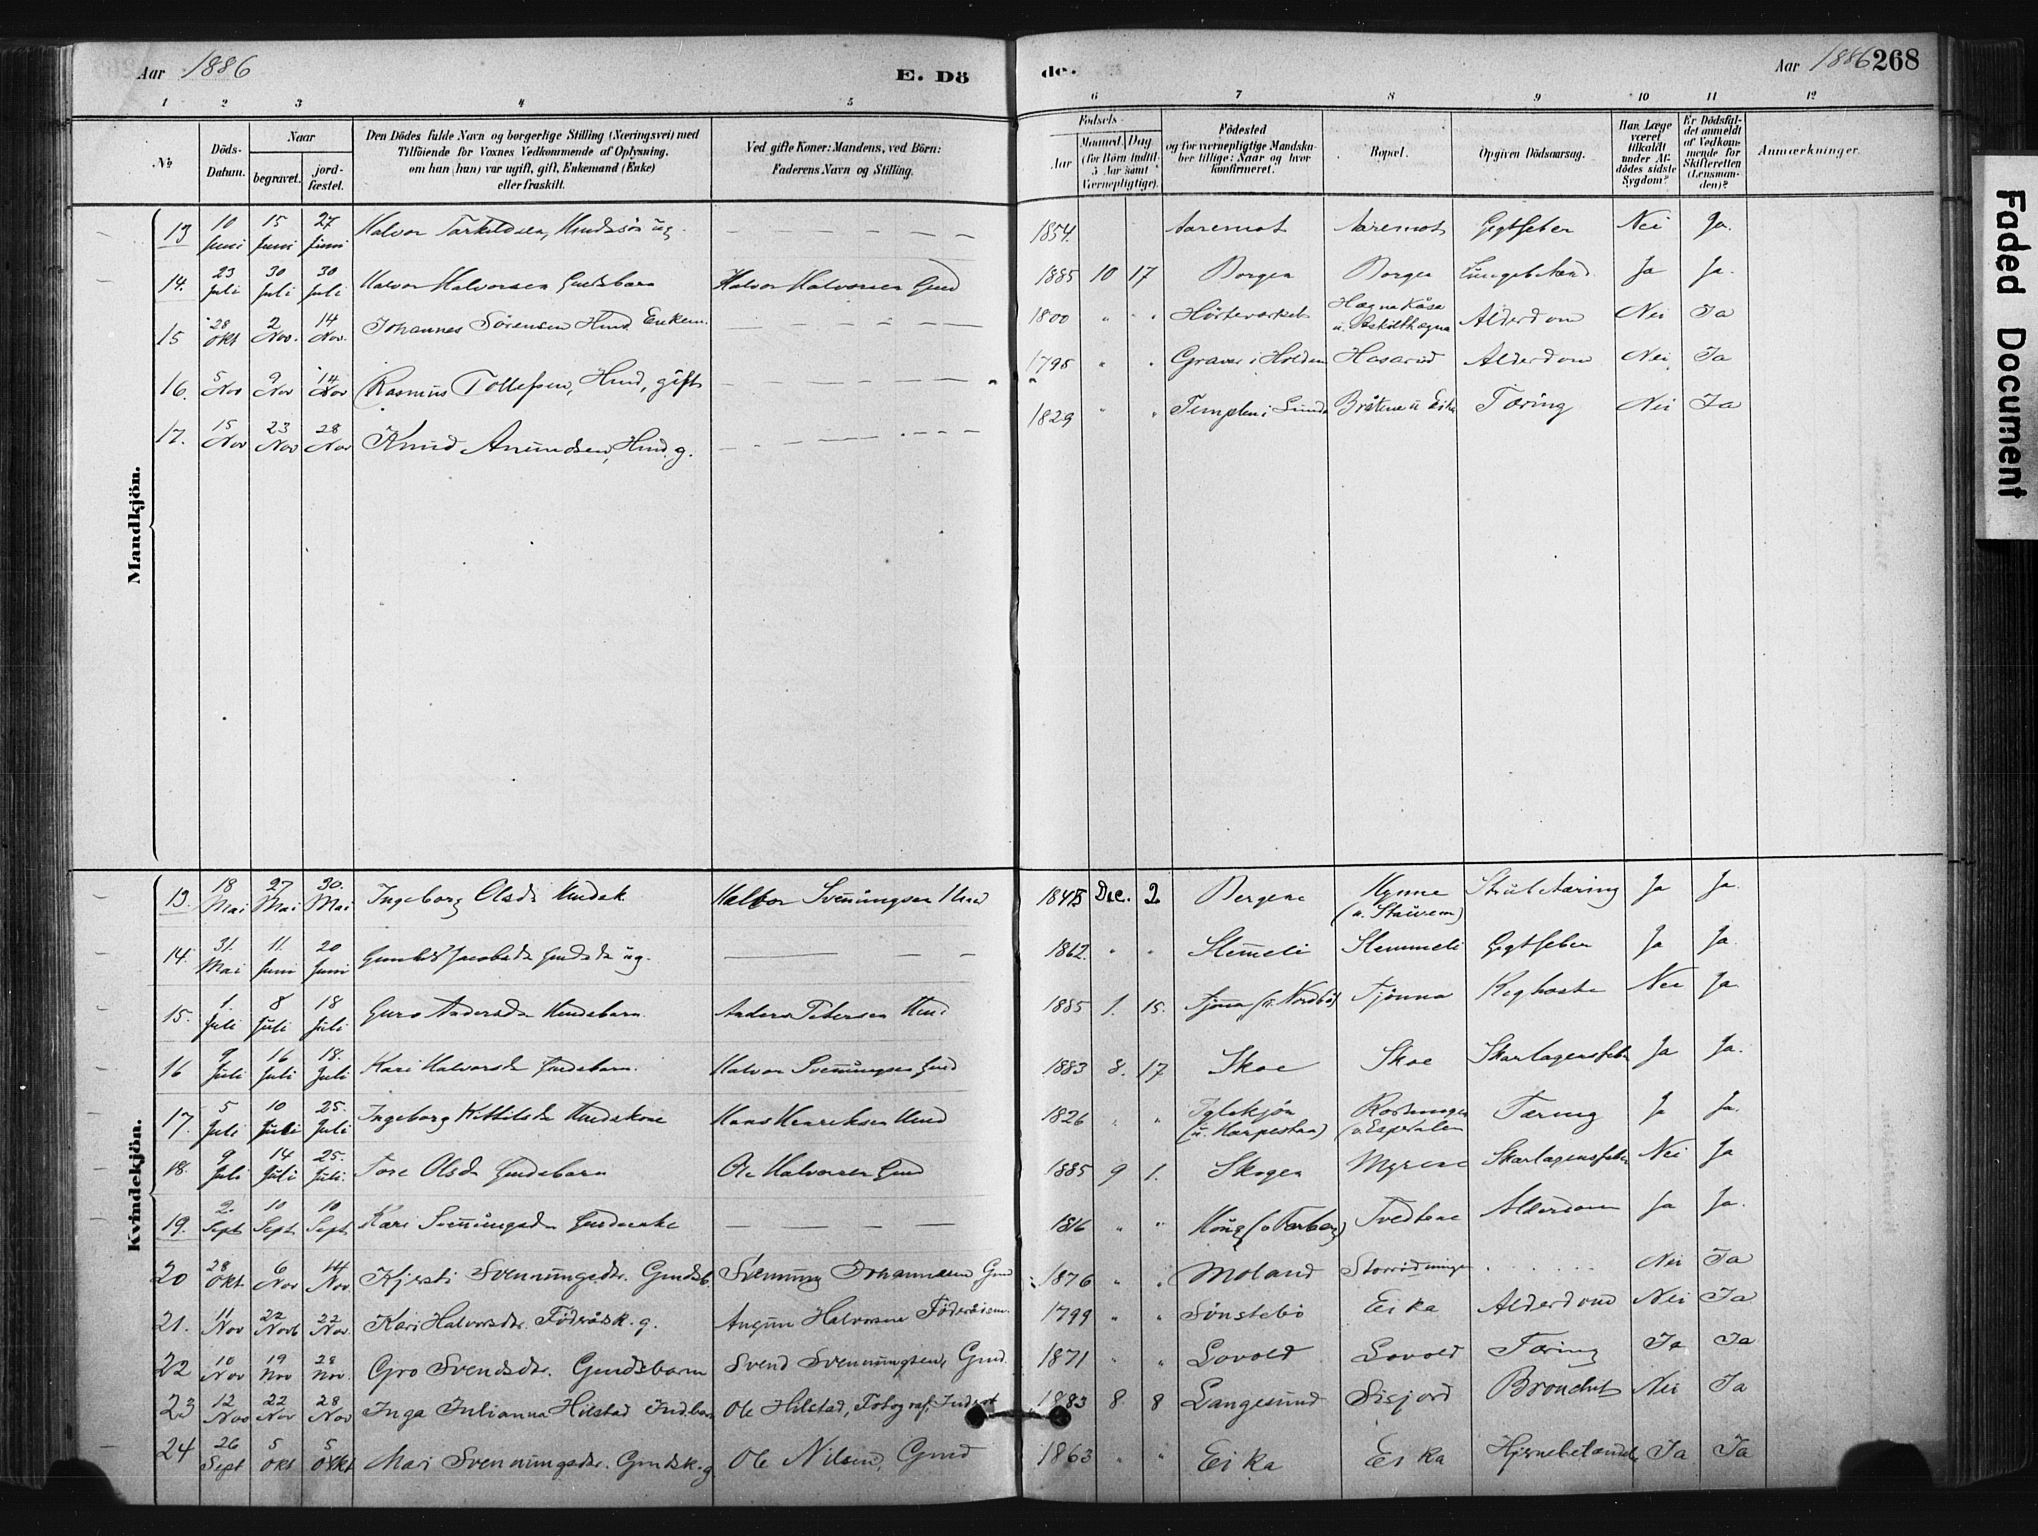 Aar 1886
E. Dö
de.
Aar 1886 268
1 2 3 4 5 6 7 8 9 10 11 12
No
Döds-
Datum.
Naar
begravet.
jord-
fæstet.
Den Dödes fulde Navn og borgerlige Stilling (Næringsvei) med
Tilföiende for Voxnes Vedkommende af Oplysning,
om han (hun) var ugift, gift, Enkemand (Enke)
eller fraskilt.
Ved gifte Koner: Mandens, ved Börn:
Faderens Navn og Stilling.
Födsels-
Aar
Maaned. Dag
(for Börn indtil
5 Aar samt
Værnepligtige).
Födested
og for værnepligtige Mandska-
ber tillige: Naar og hvor
konfirmeret.
Bopæl.
Opgiven Dödsaarsag.
Har Læge
været
tilkaldt
under Af-
dödes sidste
Sygdom?
Er Dödsfal-
det anmeldt
af Vedkom-
mende for
Skifteretten
(Lensman-
den)?
Anmærkninger.
Mandkjön.
13 10 Juni 15 Juni 27 Juni Halvor Tarkildsen, ug. 1854. Aaremot Aaremot Gigtfeber Nei Ja.
14. 23 Juli 30 Juli 30 Juli Halvor Halvorsen Gmdsbarn Halvor Halvorsen Gmd 1885 10 17 Borgen Borgen Ja Ja.
15 28 Okt 2 Nov. 14 Nov. Johannes Sörensen Hmd Enkem. 1800 " " Hörteverket Hægnakåsa u. Alderdom Nei Ja
16. 5 Nov 9 Nov 14 Nov Rasmus Tollefsen, Hmd, gift 1798 " " Graver i Holden Haserud Alderdom Nei Ja
17. 15 Nov 23 Nov 28 Nov Knud Amundsen, Hmd. g. 1829 " " Templen i Lunde Bråtene u Eika Tæring Nei Ja
Kvindekjön.
13. 18 Mai 27 Mai 30. Mai Ingeborg Olsdr Halvor Svenningsen Hmd Dec. 2 Bergene Hynne (u. Stuvem) Strubetæring Ja Ja.
14. 31. Mai 11. Juni 20 Juni Gunhild Jacobsdr ug. 1862. " " Slemmeli Slemmeli Gigtfeber Ja Ja.
15. 1. Juli 8 Juli 18 Juli Guro Andersdr Hmdsbarn Anders Petersen Hmd 1885 1. 15. Tjönna (u. Nordbö) Tjönna Kighoste Nei Ja
16 9 Juli 16 Juli 18. Juli Kari Halvorsdr Gmdsbarn. Halvor Svenningsen Gmd 1883 8. 17 Skoe Skoe Skarlagensfeber Ja Ja.
17. 5 Juli 10 Juli 25. Juli Ingeborg Kittilsdr Hmdskone Hans Henriksen Hmd 1826 " " Iglekjön (u. Harpestua) Tæring Ja Ja.
18. 9 Juli 14 Juli 25. Juli. Tore Olsdr Gmdsbarn Ole Halvorsen Gmd 1885 9 1. Skogen Myrene Skarlagensfeber Nei Ja
19. 2. Sept 10 Sept 10 Sept Kari Svenningsdr Gmdsenke 1816 " " Tvedtene Alderdom Ja Ja.
20 28 Okt 6 Nov 14 Nov Kjersti Svenningsdr. Gmdsb. Svenning Johannesen Gmd 1876 " " Moland Nei Ja
21. 11 Nov 22 Novb 22 Nov. Kari Halvorsdr. Föderådsk. g. Halvorsen Föderådsm. 1799 " " Sönstebö Eika Alderdom Nei Ja
22 10 Nov 19 Nov 28 Nov. Gro Svendsdr. Gmdsbarn Svend Svenningsen, Gmd. 1871 " " Lovold Lovold Tæring Ja Ja
23 12 Nov 22 Nov 28 Nov Inga Julianna Hilstad Indbarn Ole Hilstad, Fotograf, Inderst 1883 8 8 Langesund Sisjord Bronchit Nei Ja
24 26 Sept 5 Okt 5 Okt Mari Svenningsdr. Gmdsk. g. Ole Nilsen, Gmd 1863 " " Eika Eika Hjernebetændelse Ja Ja
Faded Document